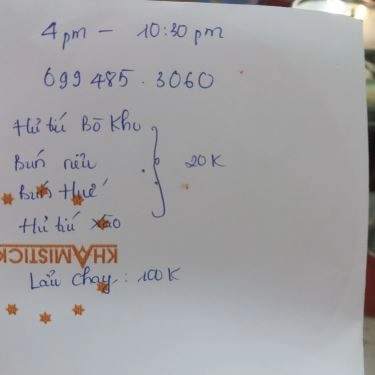 4pm – 10:30 pm
099 485.3060
Hủ tiú Bò Kho
Bún riêu
Bún Huế
20K
Hủ tiú xào
KHAMISTICK
Lẩu chay: 100K